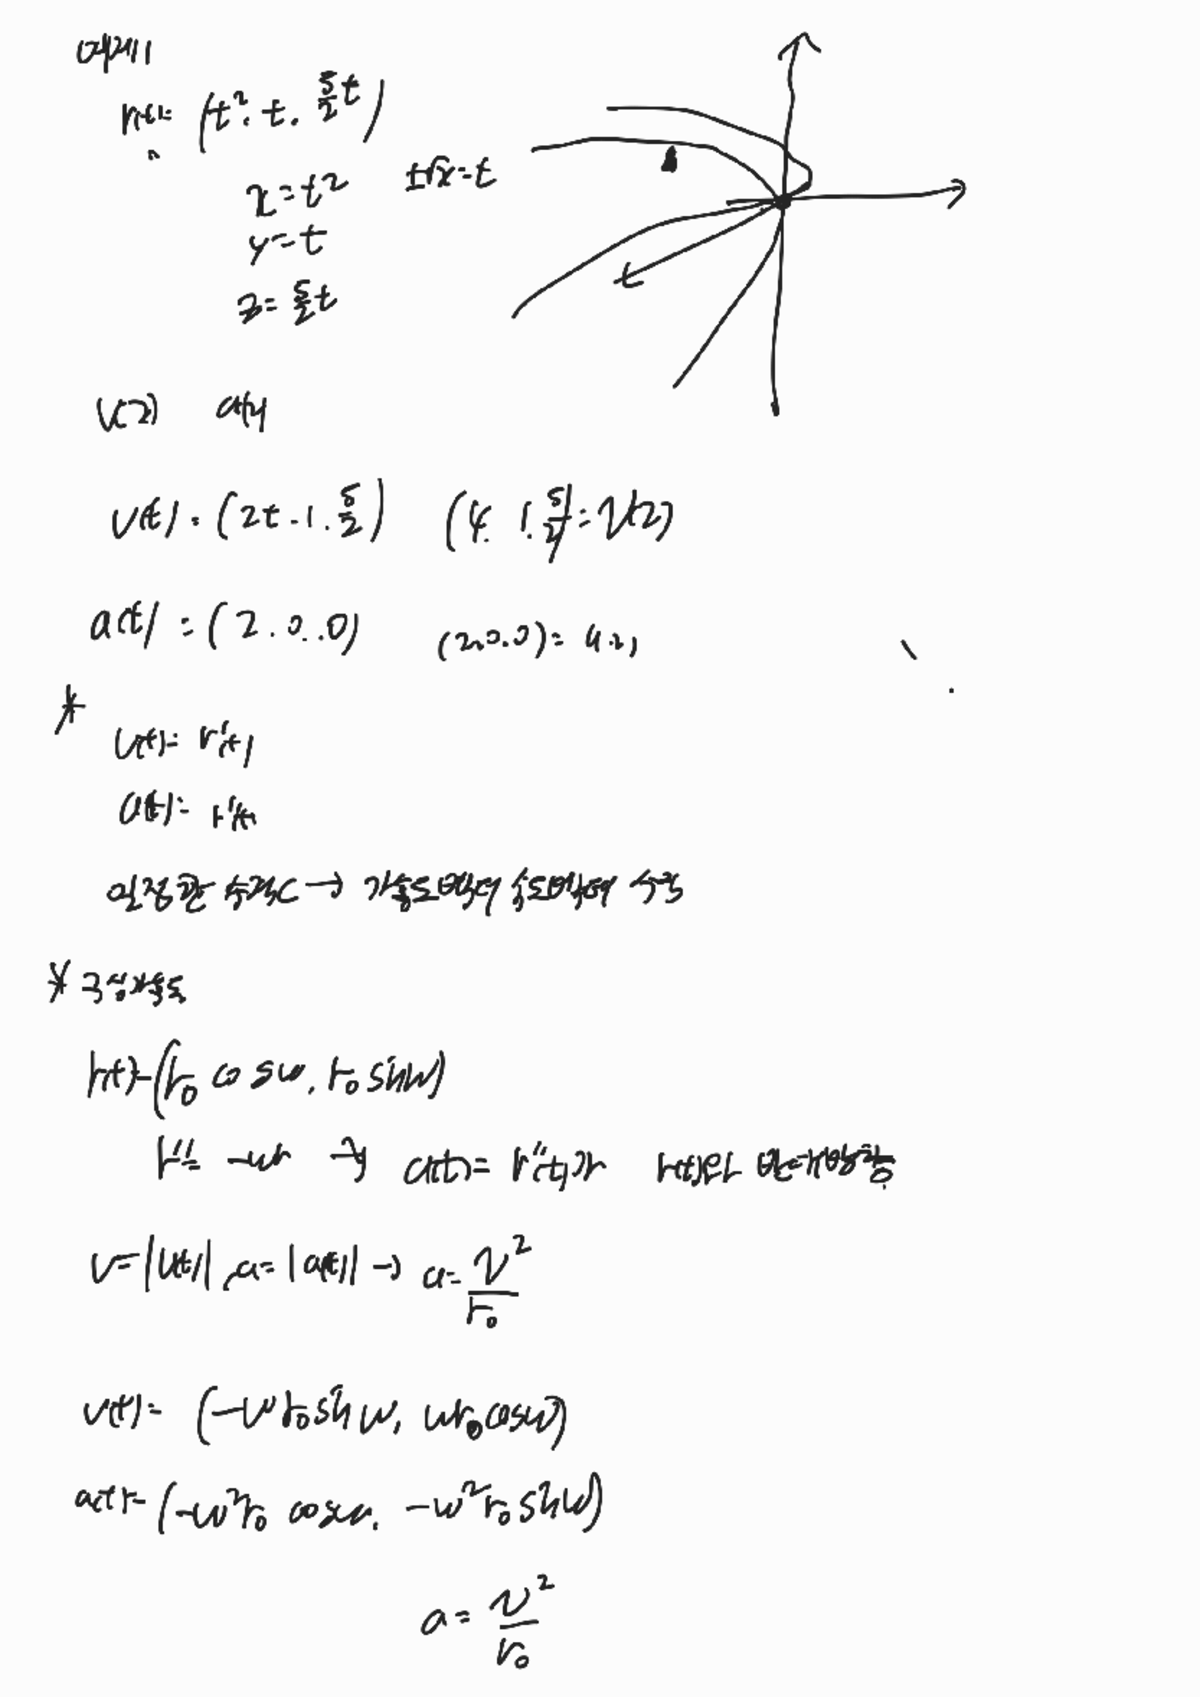 예제1
r(t)= (t². t. 5/2 t)
x=t² ±√x=t
y=t
z=5/2 t
t
v(2) a(2)
v(t)=(2t.1.5/2) (4. 1. 5/2)=v(2)
a(t)=(2.0.0) (2.0.0)=a(2)
* v(t)=r'(t)
a(t)=r''(t)
일정한 속력C → 가속도벡터 속도벡터 수직
* 구심가속도
r(t)=(r₀ cosw, r₀ sinw)
r''=-wr → a(t)=r''(t)가 r(t)와 반대방향.
v=|v(t)|, a=|a(t)| → a=v²/r₀
v(t)= (-wr₀sinw, wr₀cosw)
a(t)=(-w²r₀ cosw, -w²r₀ sinw)
a=v²/r₀